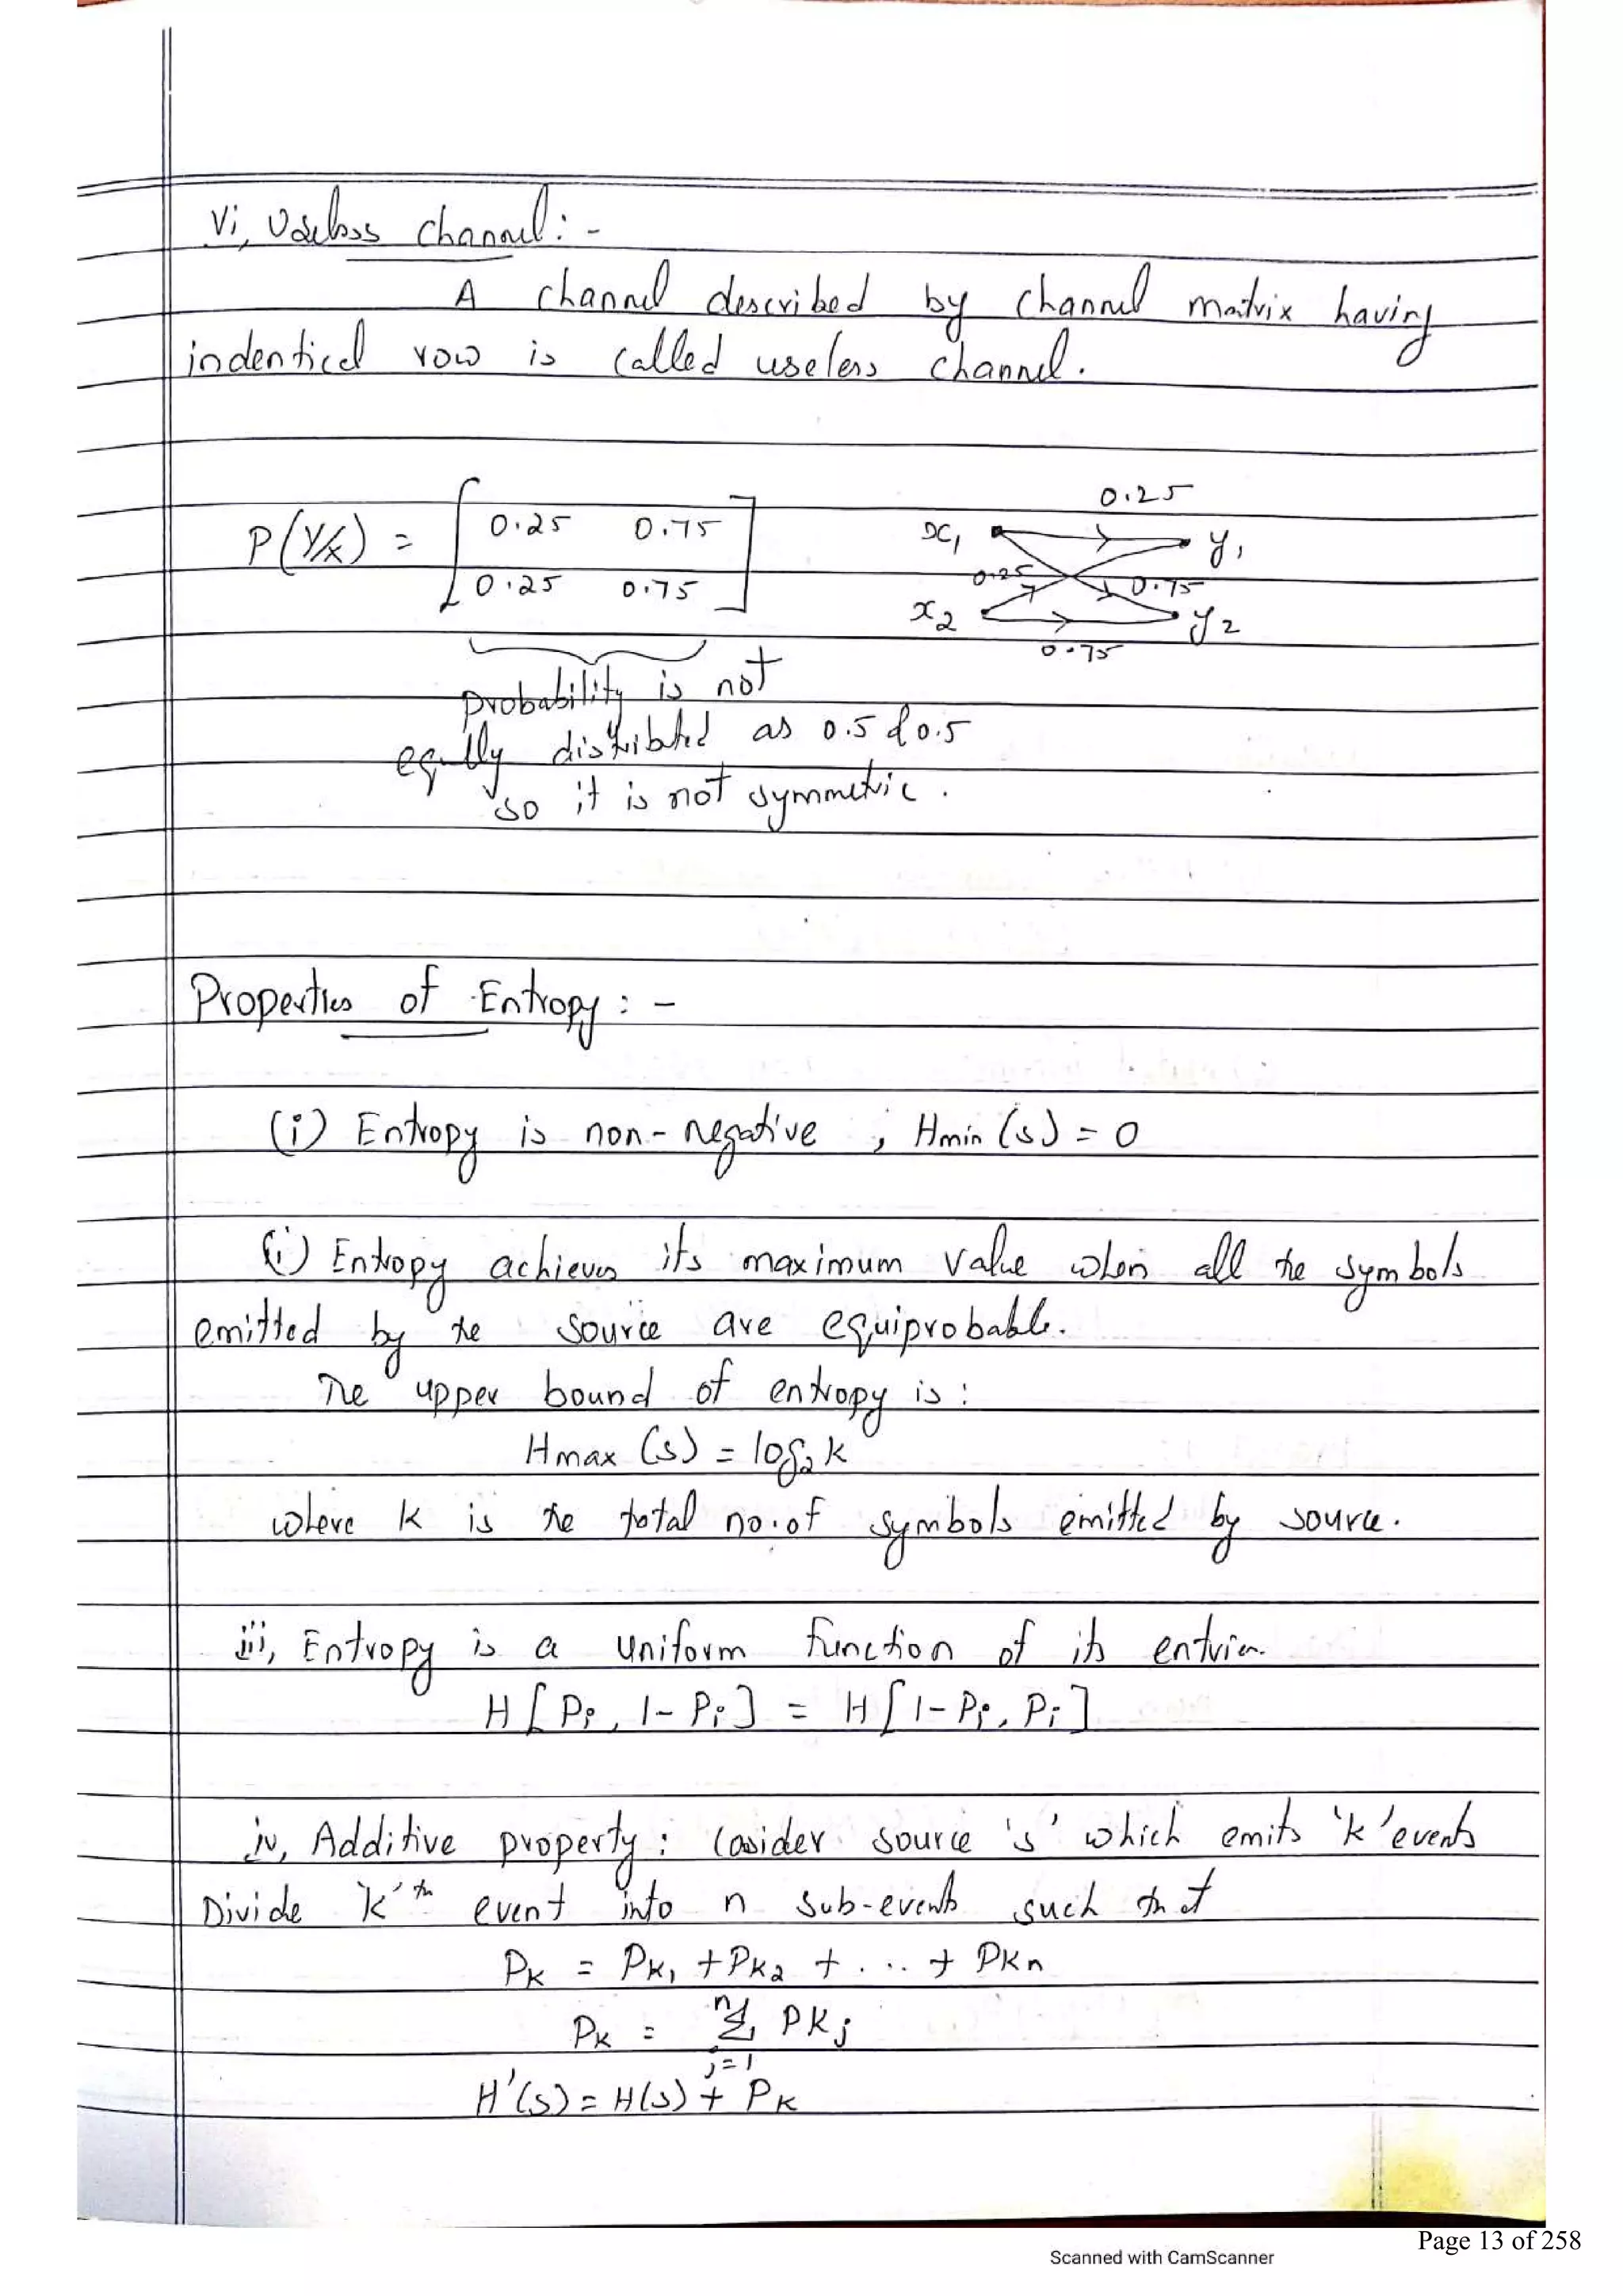 vi, Useless channel : -
A channel described by channel matrix having
indentical row is called useless channel.
P(Y/X) = [ 0.25 0.75
0.25 0.75 ]
x1 0.25 y1
0.25 0.75
x2 0.75 y2
probability is not
eqully distributed as 0.5 & 0.5
so it is not symmetric.
Properties of Entropy : -
(i) Entropy is non-negative , Hmin (s) = 0
(ii) Entropy achieves its maximum value when all the symbols
emitted by the source are equiprobable.
The upper bound of entropy is :
Hmax (s) = log2 k
where k is the total no. of symbols emitted by source.
iii, Entropy is a uniform function of its entries.
H [ Pi , 1- Pi ] = H [ 1- Pi , Pi ]
iv, Additive property : Cosider source 's' which emits 'k' events
Divide 'k'th event into n sub-events such that
PK = PK1 + PK2 + . . . + PKn
PK = n Σ j=1 PKj
H'(s) = H(s) + PK
Page 13 of 258
Scanned with CamScanner